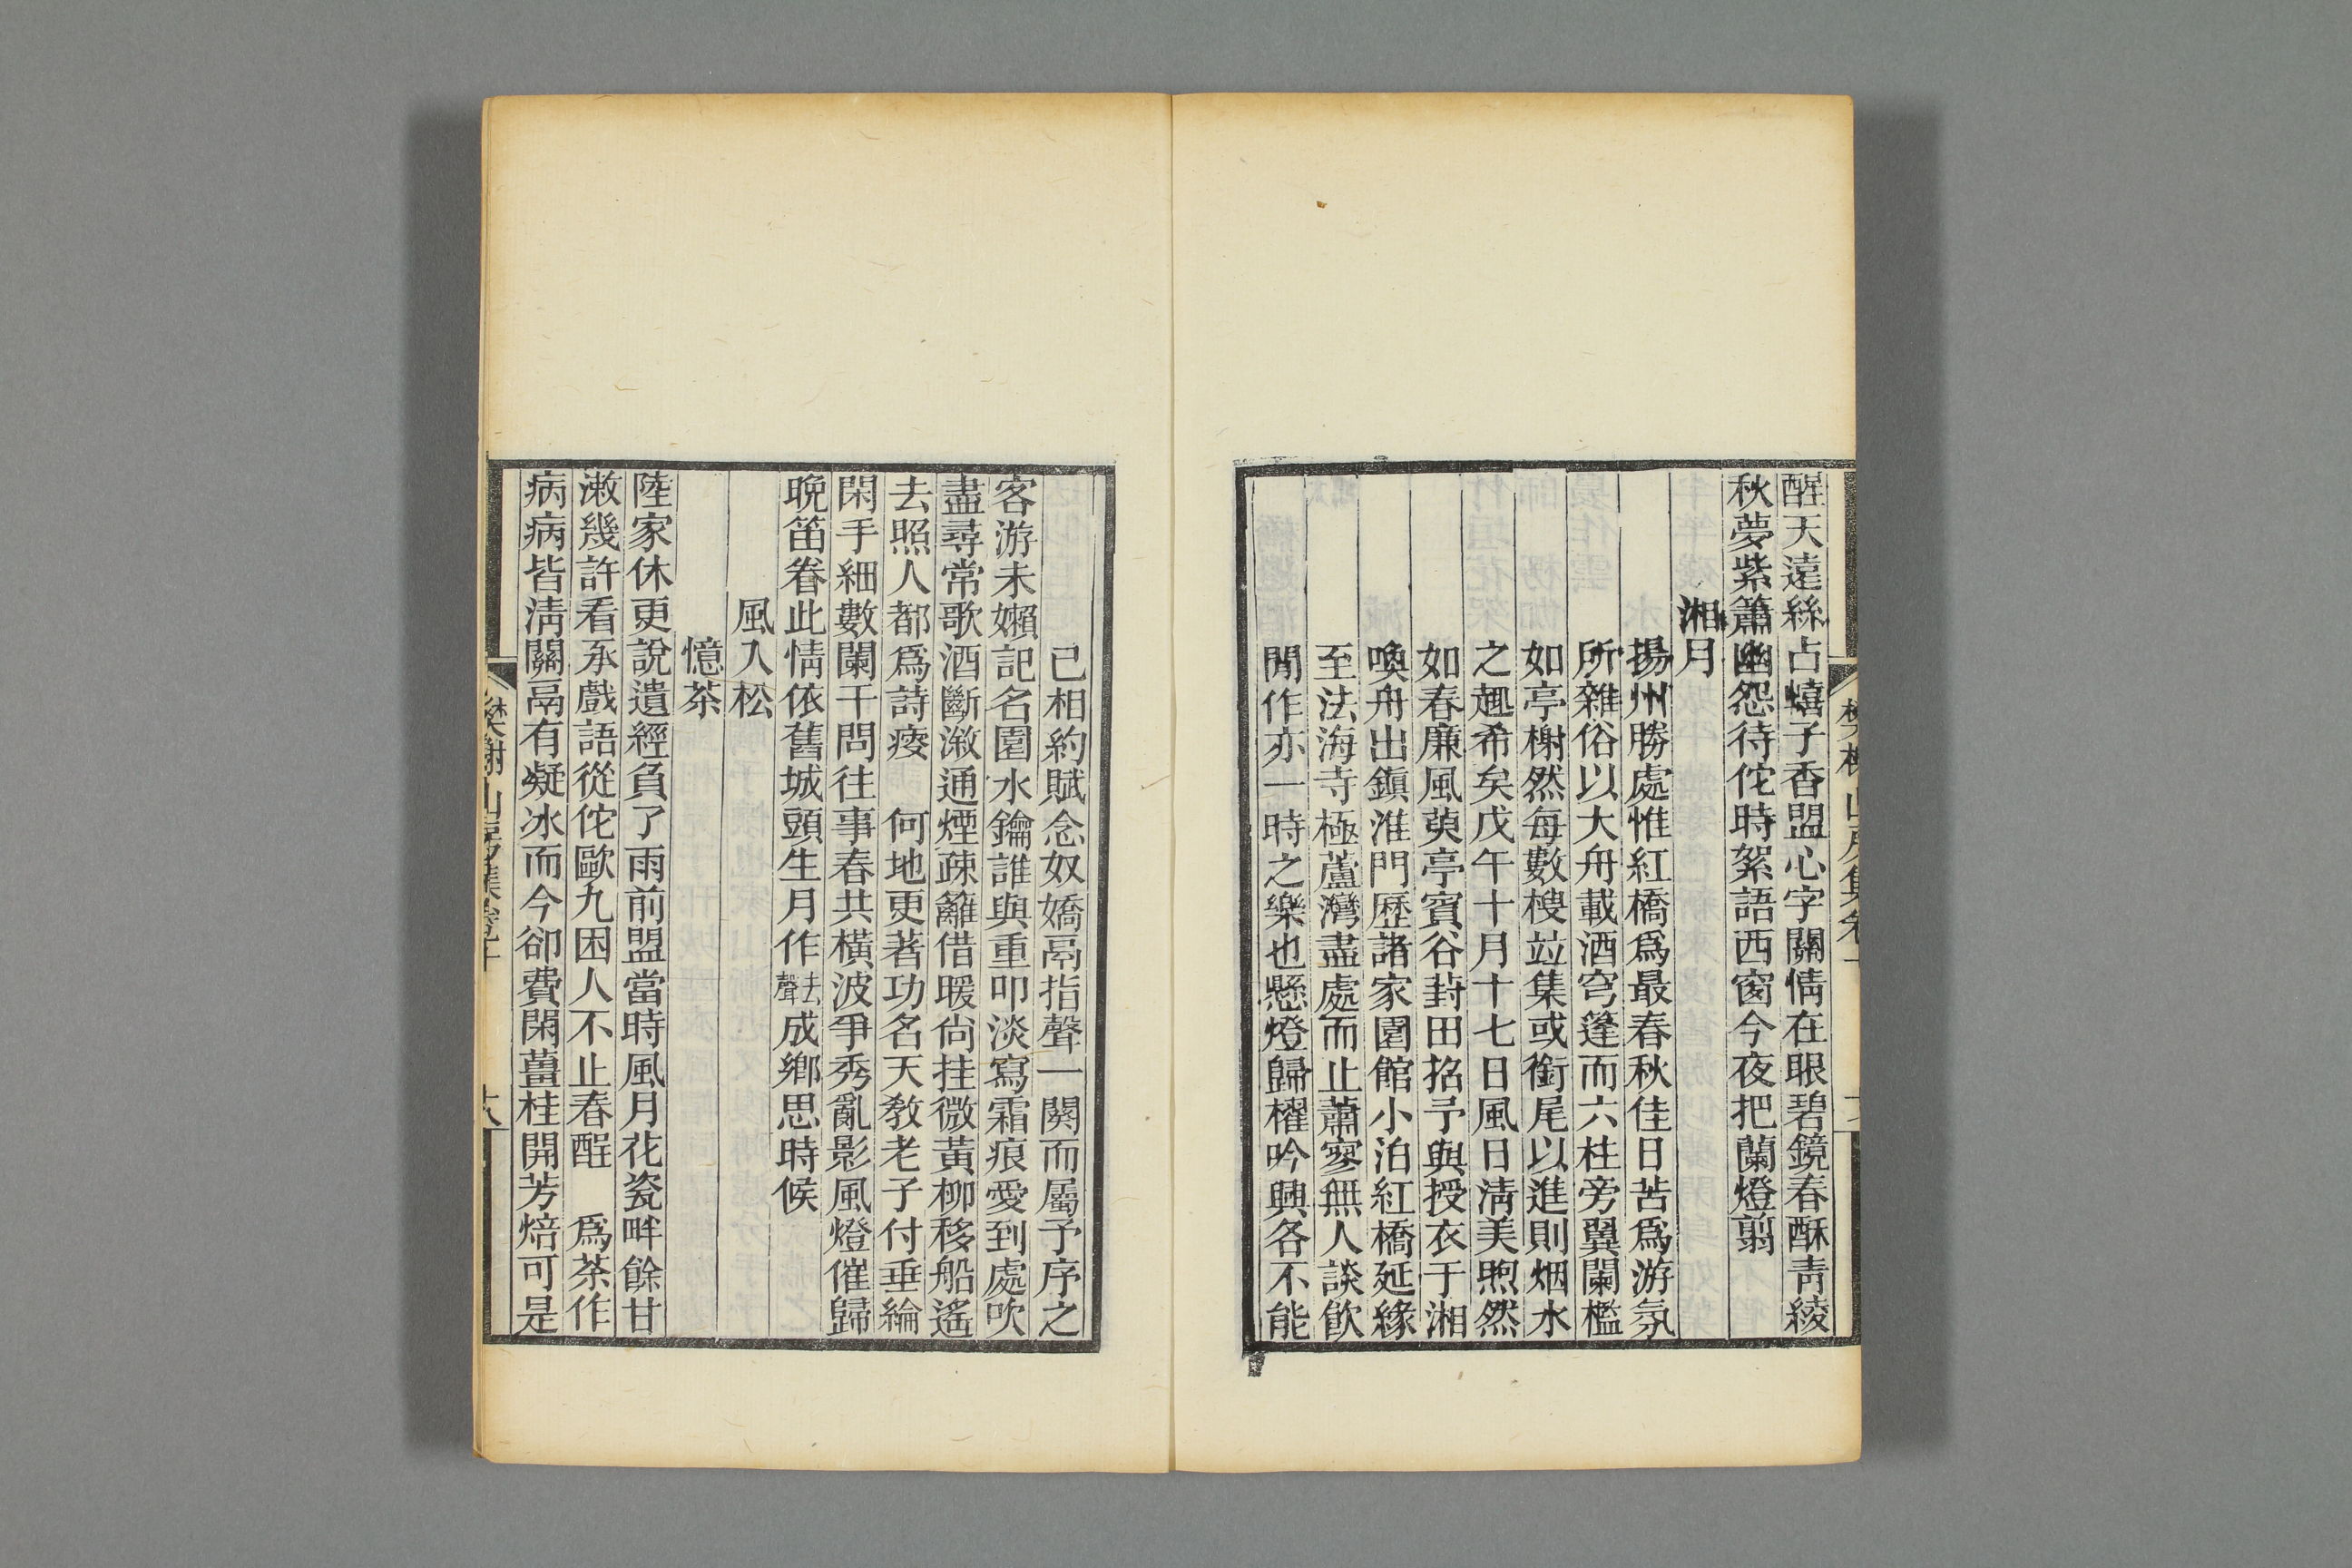 醒天遠絲占蟢子香盟心字關情在眼碧鏡春酥靑綾
秋夢紫簫幽怨待佗時絮語西窗今夜把蘭燈翦
湘月
揚州勝處惟紅橋爲最春秋佳日苦爲游氛
所雜俗以大舟載酒穹篷而六柱旁翼闌檻
如亭榭然每數榜竝集或銜尾以進則烟水
之趣希矣戊午十月十七日風日淸美煦然
如春廉風萸亭賓谷葑田招予與授衣于湘
喚舟出鎭淮門歷諸家園館小泊紅橋延緣
至法海寺極蘆灣盡處而止蕭寥無人談飮
閒作亦一時之樂也懸燈歸櫂吟興各不能
已相約賦念奴嬌鬲指聲一闋而屬予序之
客游未嬾記名園水鑰誰與重叩淡寫霜痕愛到處吹
盡尋常歌酒斷漵通煙疎籬借暖尙挂微黃柳移船遙
去照人都爲詩瘦　何地更著功名天敎老子付垂綸
閑手細數闌干問往事春共橫波爭秀亂影風燈催歸
晩笛眷此情依舊城頭生月作去聲成鄕思時候
風入松
憶茶
陸家休更說遺經負了雨前盟當時風月花瓷畔餘甘
漱幾許看承戲語從佗歐九困人不止春酲　爲茶作
病病皆淸關鬲有凝冰而今卻費閑薑桂開芳焙可是
樊榭山房集卷十
六